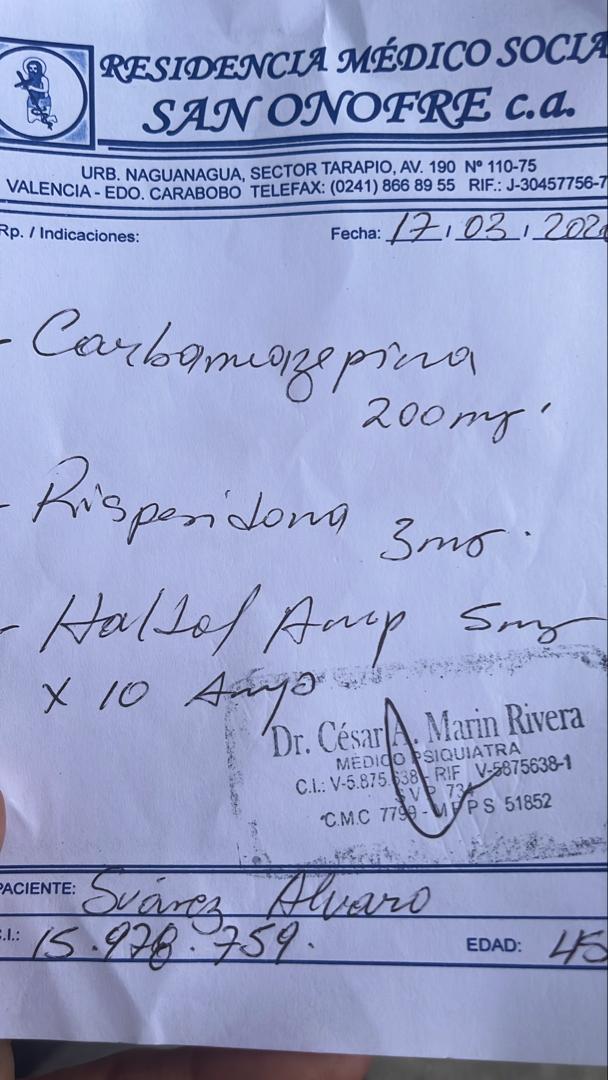 RESIDENCIA MÉDICO SOCIA
SAN ONOFRE c.a.
URB. NAGUANAGUA, SECTOR TARAPIO, AV. 190 Nº 110-75
VALENCIA - EDO. CARABOBO TELEFAX: (0241) 866 89 55 RIF.: J-30457756-7
Rp. / Indicaciones:
Fecha: 17 / 03 / 202
- Carbamazepina
200mg.
- Risperidona 3mg.
- Haldol Amp 5mg
x 10 Amp
Dr. César A. Marin Rivera
MÉDICO PSIQUIATRA
C.I.: V-5.875.638 - RIF V-5875638-1
C.M.C 7799 - MPPS 51852
PACIENTE: Suárez Alvaro
C.I.: 15.978.759.
EDAD: 45